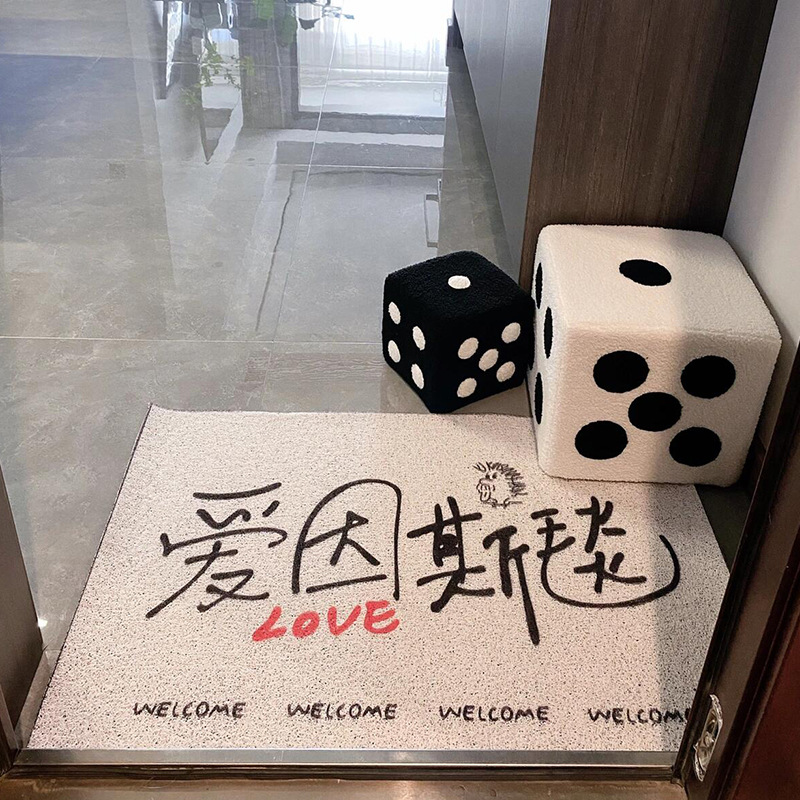 爱因斯毯
LOVE
WELCOME WELCOME WELCOME WELCOME